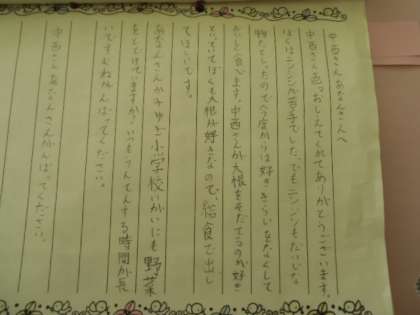 中西さんあなんさんへ
中西さん色々おしえてくれてありがとうございます。
ぼくはニンジンが苦手でした。でもニンジンもだいじな
物だとしったので今度からは好ききらいしなくして
たべます。中西さんが大根をそだてるのが好き
といっていてぼくも大根が好きなので、給食で出し
てほしいです。
あなんさんが小学校いがいにも野菜
をとどけていますか。いつもうんてんする時間が長
いですけどがんばってください。
中西さんあなんさんがんばってください。